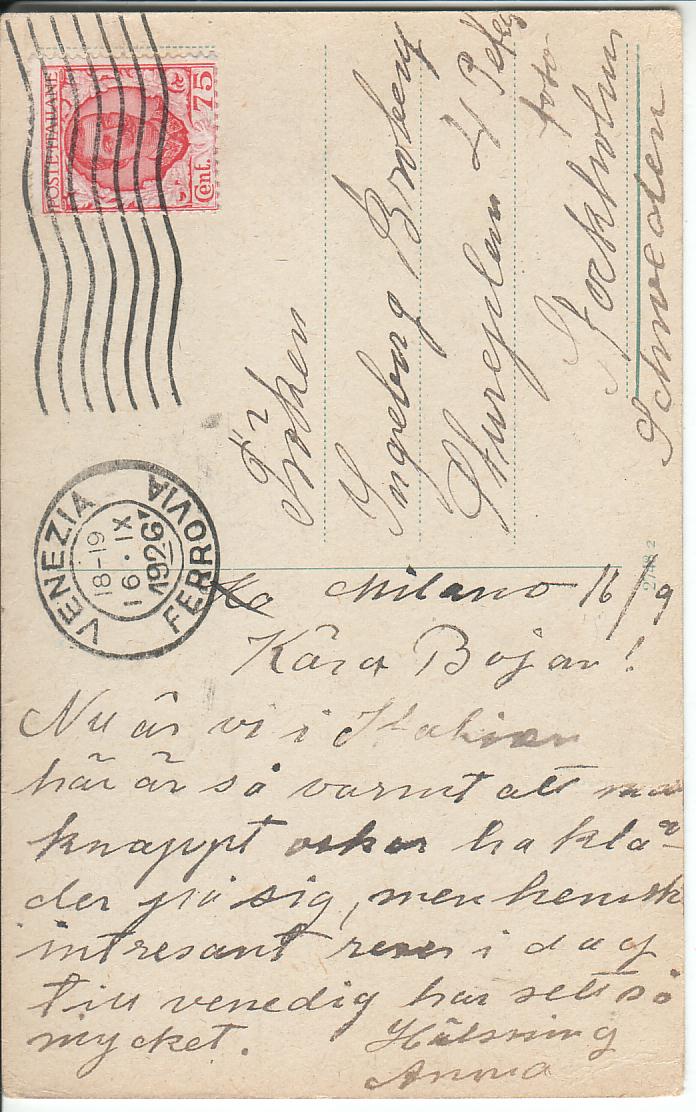 POSTE ITALIANE
Cent. 75
VENEZIA
18-19
16. IX
1926
FERROVIA
Fröken
Ingeborg Broberg
Stureplan 4
foto
Stockholm
Schweden
2748 2
Milano 16/9
Kära Bojan!
Nu är vi i Italien
här är så varmt att man
knappt orkar ha klä-
der på sig, men hemsk
intresant reser i dag
till venedig har sett så
mycket.
Hälsning
Anna